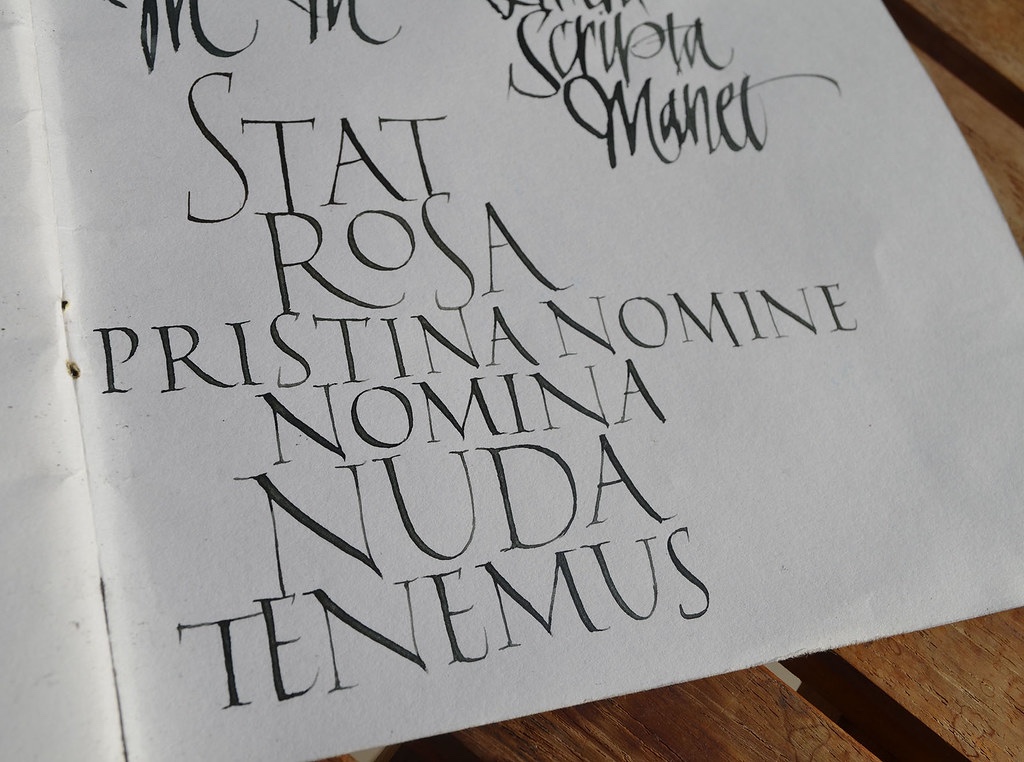 Scripta
Manet
STAT
ROSA
PRISTINA NOMINE
NOMINA
NUDA
TENEMUS